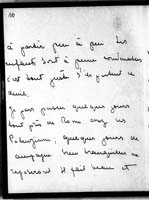 10
à partir peu à peu. Les
enfants sont à peine
c'est tout juste s'ils
je vais passer quelques jours
tout près de Rome chez les
quelques jours de
campagne bien tranquilles me
reposeront. Il fait beau et